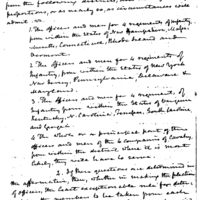 from the following districts, and
proportions, or as nearly so, as circumstances will
admit. viz.
1. The officers and men for 4 regiments of Infantry
from within the States of New Hampshire, Massa-
chusetts, Connecticut, Rhode Island and
Vermont.
2. The officers and men for 4 regiments of
Infantry, from within the States of New York
New Jersey, Pennsylvania, Delaware &
Maryland.
3. The officers and men for 4 regiments, of
Infantry from within the States of Virginia
Kentucky, N. Carolina, Tennessee, South Carolina
and Georgia.
4. The whole or a principal part of the
officers and men of the 6 companies of Cavalry,
from within the district where it is most
likely, they will have to serve.
2. If these questions are determined in
the affirmative, then, whether in making the selection
of officers, the least exceptionable rule for deter-
the number to be taken from each